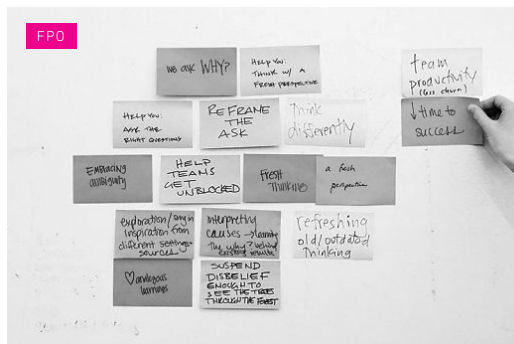 FPO
we ask WHY?
HELP YOU:
THINK W/ A
FRESH PERSPECTIVE
team
productivity
(less churn)
HELP YOU:
ASK THE
RIGHT QUESTIONS
REFRAME
THE
ASK
Think
differently
↓ time to
success
EMBRACING
ambiguity
HELP
TEAMS
GET
UNBLOCKED
FRESH
THINKING
a fresh
perspective
exploration/
inspiration from
different settings +
sources
interpreting
causes → learning
The why? behind
existing results
refreshing
old/outdated
thinking
♡ analogous
learnings
SUSPEND
DISBELIEF
ENOUGH TO
SEE THE TREES
THROUGH THE FOREST